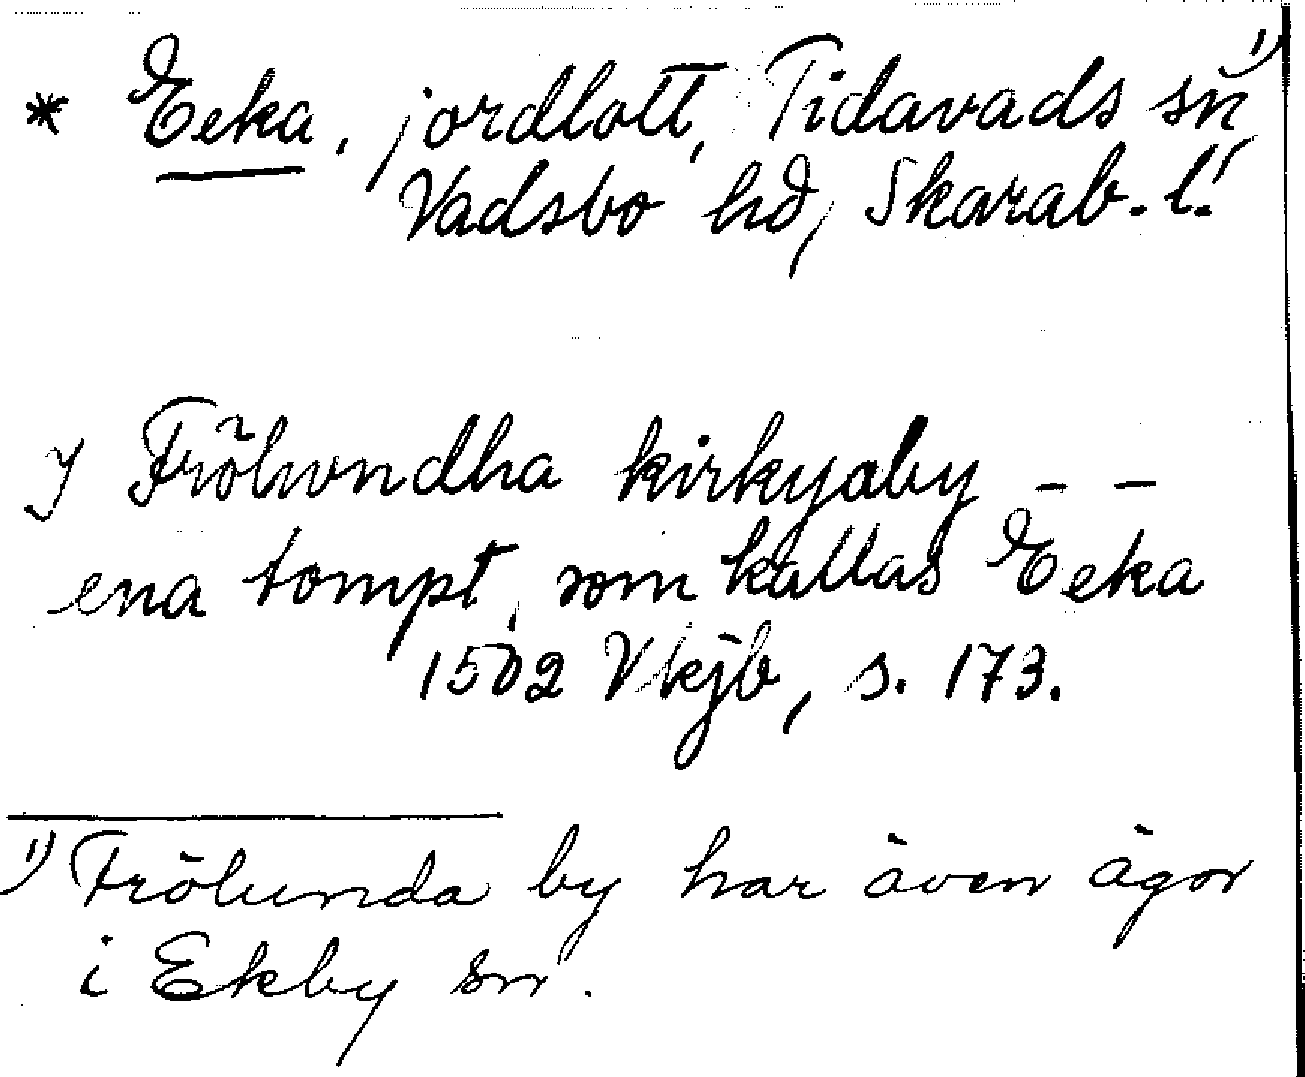 * Eeka, jordlott, Tidavads sn 1)
Vadsbo hd, Skarab. l.
J Frölundha kirkyaby - -
ena tompt, som kallas Eeka
1502 Vkjb, s. 173.
1) Frölunda by har även ägor
i Ekby sn.